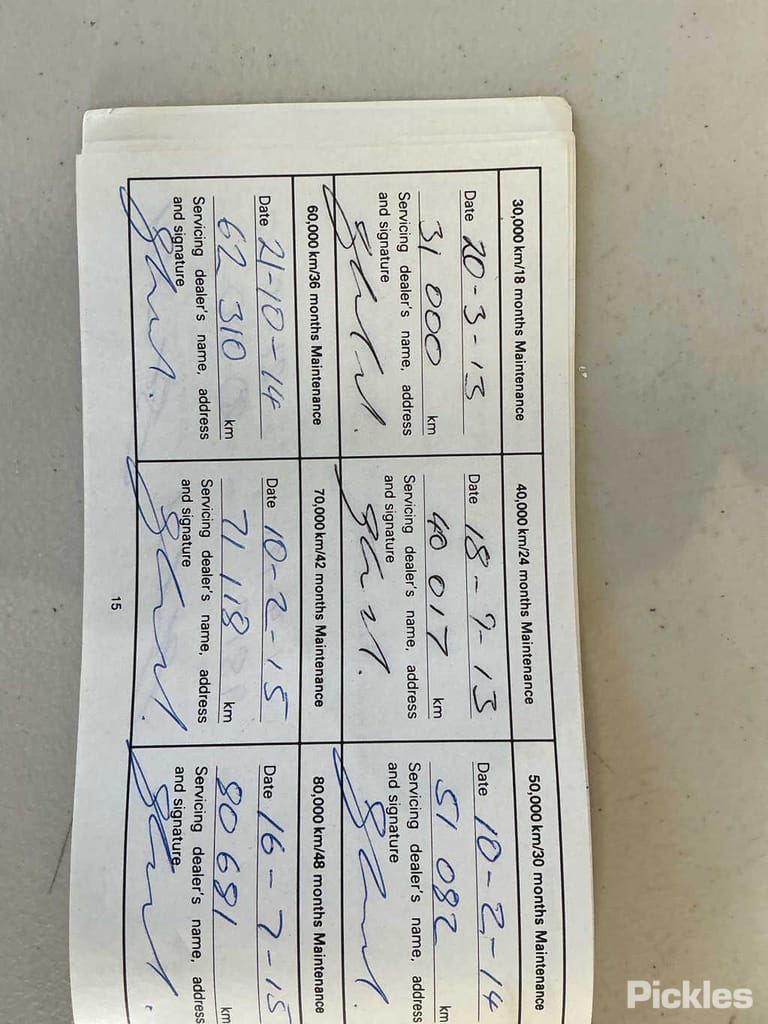 30,000 km/18 months Maintenance
Date 20-3-13
31 000 km
Servicing dealer's name, address
and signature
40,000 km/24 months Maintenance
Date 18-9-13
40 017 km
Servicing dealer's name, address
and signature
50,000 km/30 months Maintenance
Date 10-2-14
51 082 km
Servicing dealer's name, address
and signature
60,000 km/36 months Maintenance
Date 21-10-14
62 310 km
Servicing dealer's name, address
and signature
70,000 km/42 months Maintenance
Date 10-2-15
71 118 km
Servicing dealer's name, address
and signature
80,000 km/48 months Maintenance
Date 16-7-15
80 681 km
Servicing dealer's name, address
and signature
15
Pickles